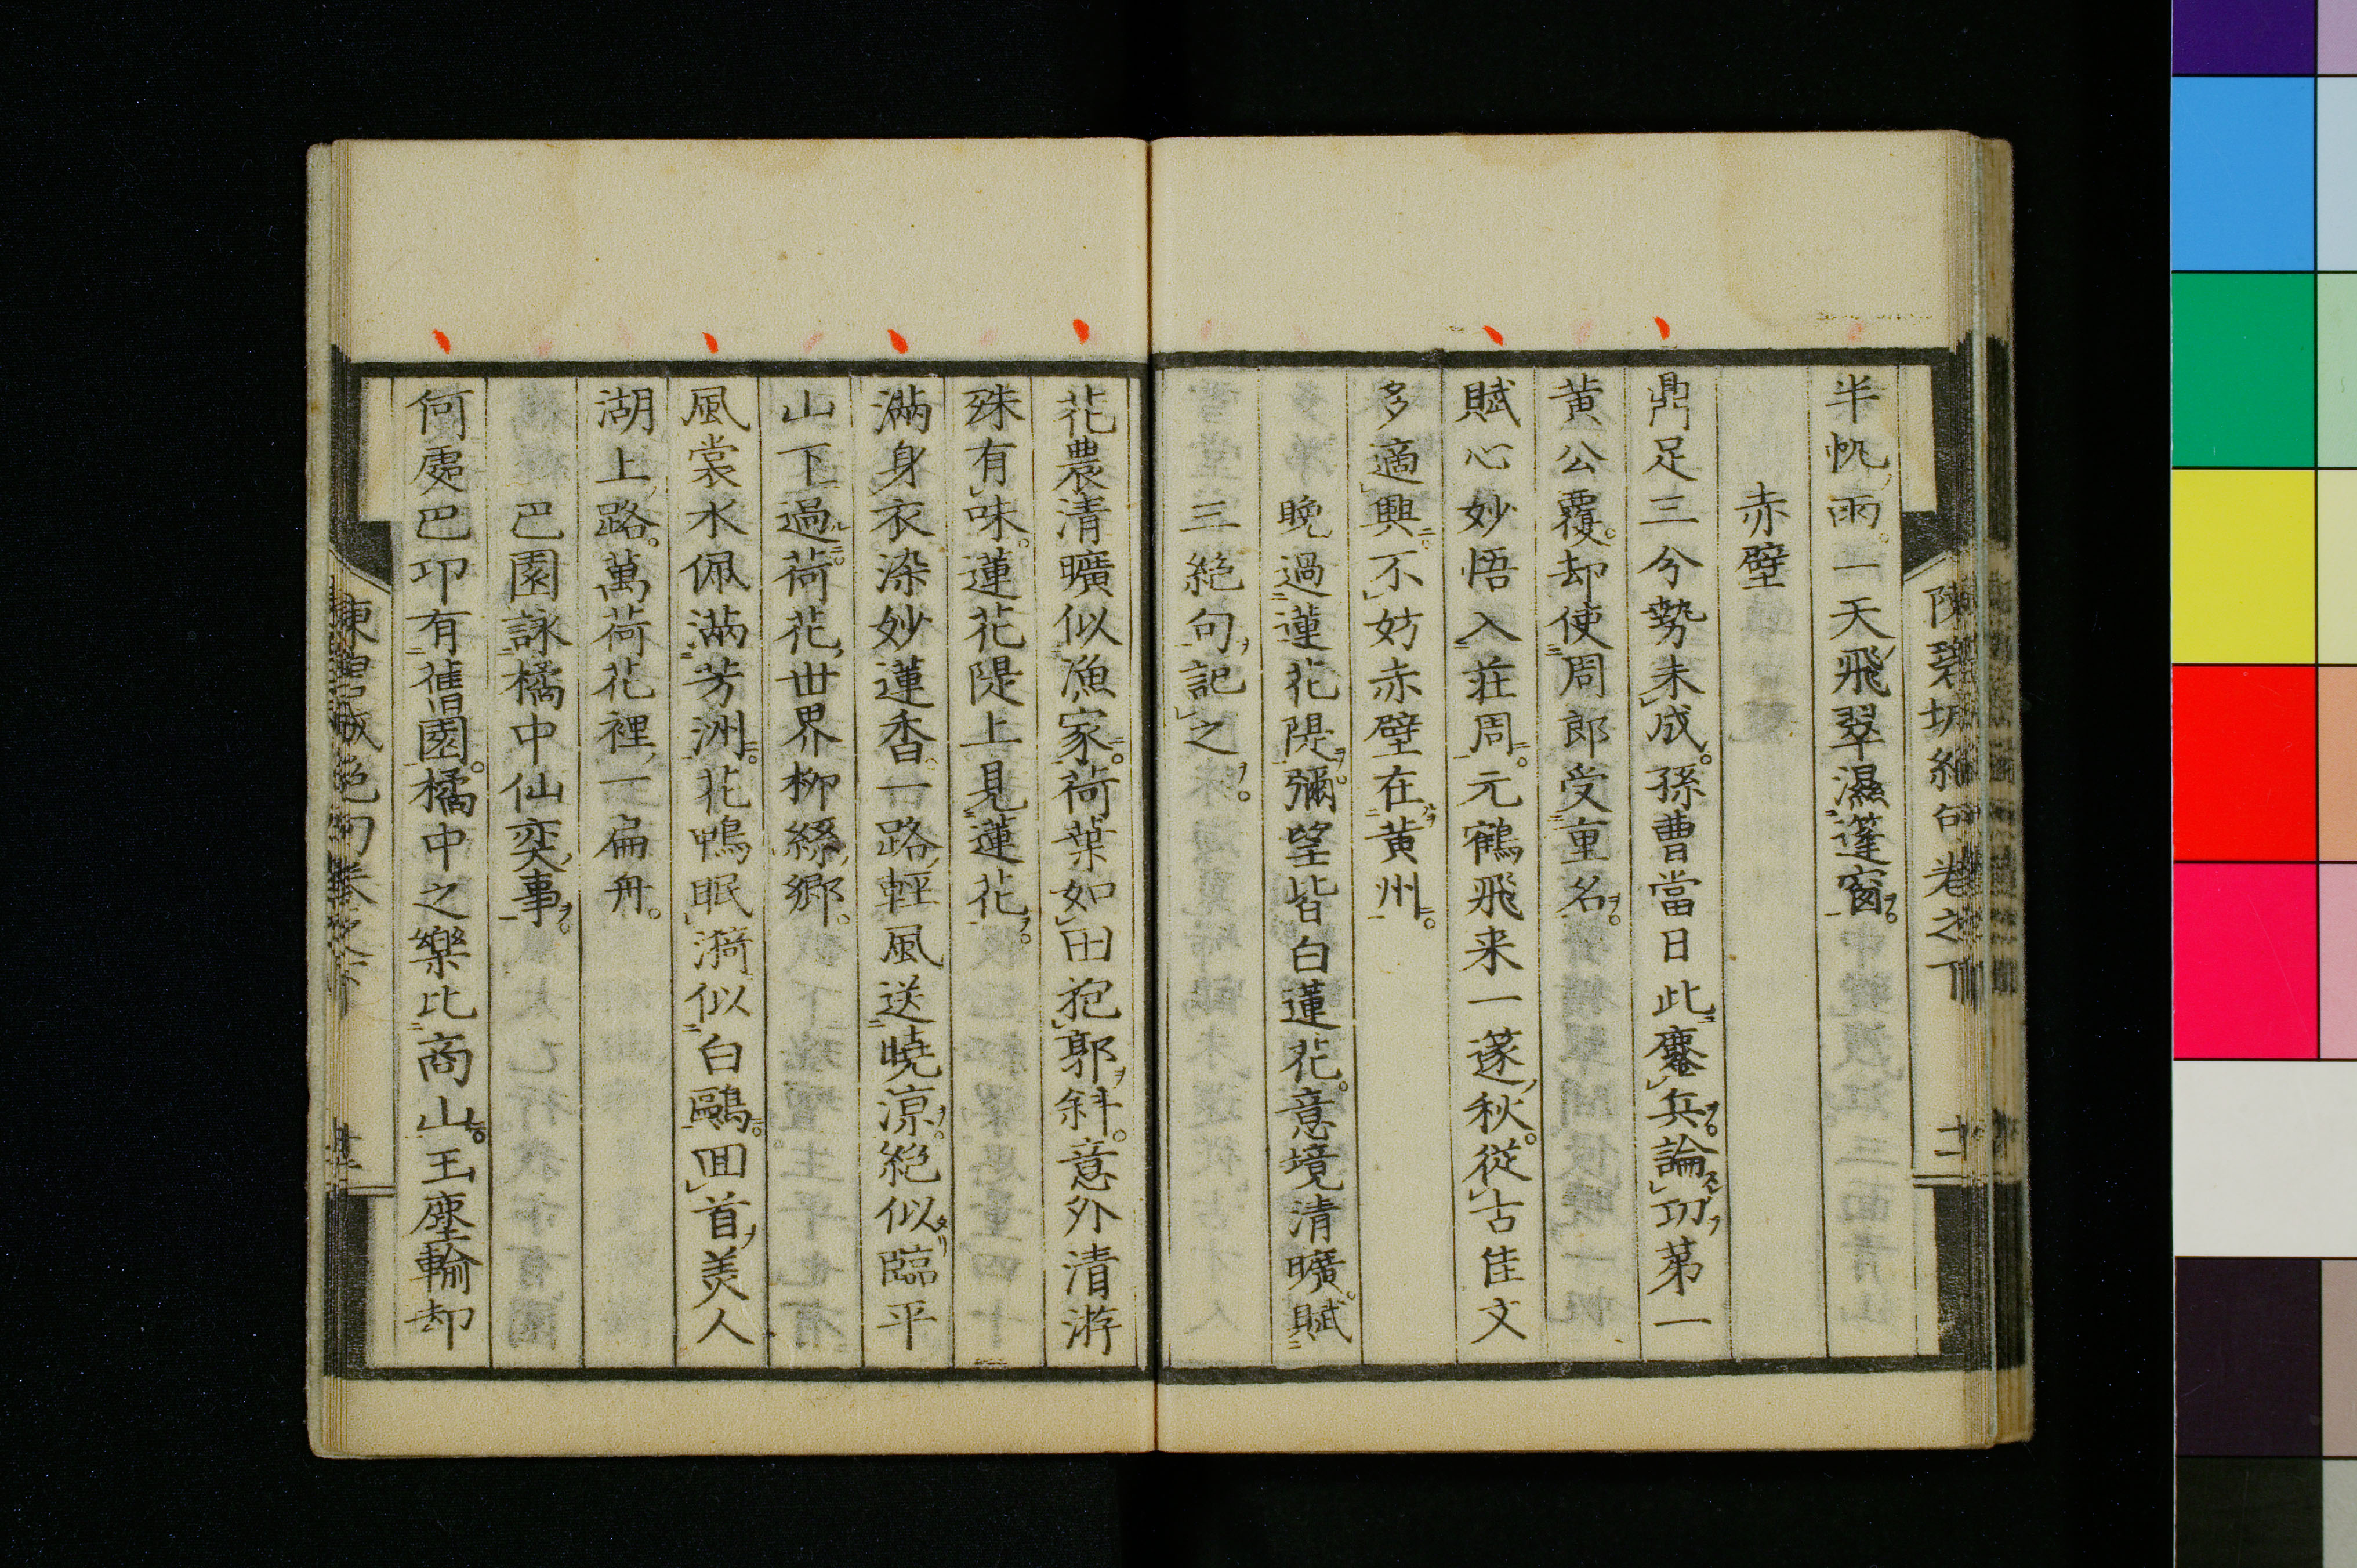 半帆雨一天飛翠濕蓬窗
赤壁
鼎足三分勢未成孫曹當日此鏖兵論功苐一
黄公覆却使周郎受重名
賦心妙悟入荘周元鶴飛来一邃秋從古佳文
多適興不妨赤壁在黄州
晚過蓮花隄彌望皆白蓮花意境清曠賦
三絶句記之
花農清曠似漁家荷葉如田抱郭斜意外清游
殊有味蓮花隄上見蓮花
滿身衣染妙蓮香一路輕風送曉涼絶似臨平
山下過荷花世界柳絲鄉
風裳水佩滿芳洲花鴨眠漪似白鷗囬首美人
湖上路萬荷花裡一扁舟
巴園詠橘中仙奕事
何處巴卭有舊園橘中之樂比商山玉塵輸却
陳碧城絶句卷之下
十二